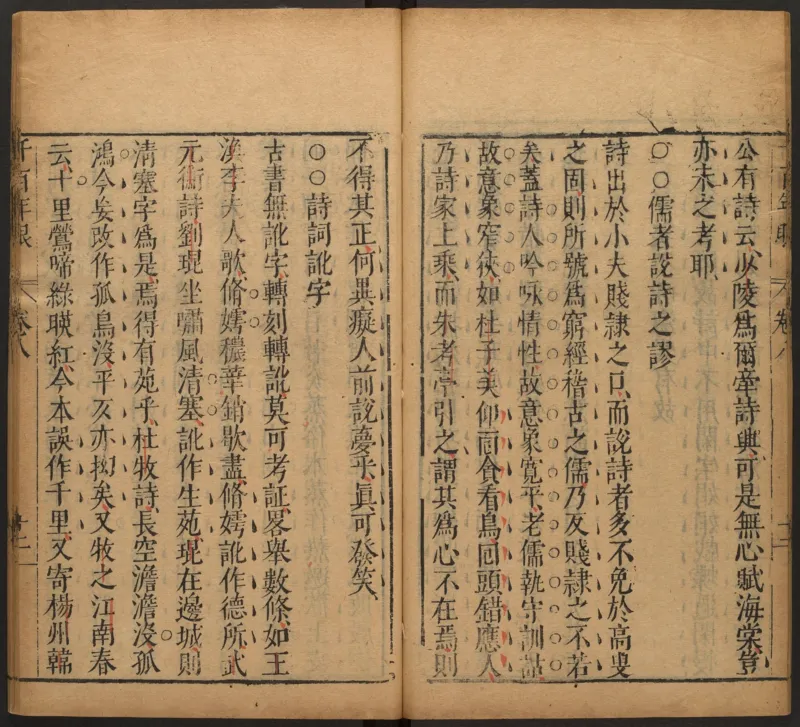 公有詩云少陵爲爾牽詩興可是無心賦海棠豈
亦未之考耶
○○儒者說詩之謬
詩出於小夫賤隷之口而說詩者多不免於高叟
之固則所號爲窮經稽古之儒乃反賤隷之不若
矣蓋詩人吟咏情性故意象寬平老儒執守訓詁
故意象窄狹如杜子美仰面貪看鳥回頭錯應人
乃詩家上乘而朱考亭引之謂其爲心不在焉則
千百年眼
卷八
十二
不得其正何異癡人前說夢乎眞可發笑
○○詩詞訛字
古書無訛字轉刻轉訛莫可考証畧舉數條如王
漢李夫人歌脩嫮穠華銷歇盡脩嫮訛作德所武
元衡詩劉琨坐嘯風清塞訛作生苑琨在邊城則
清塞字爲是焉得有苑乎杜牧詩長空澹澹沒孤
鴻今妄改作孤鳥沒平仄亦拗矣又牧之江南春
云十里鶯啼綠暎紅今本誤作千里又寄楊州韓
千百年眼
卷八
十二